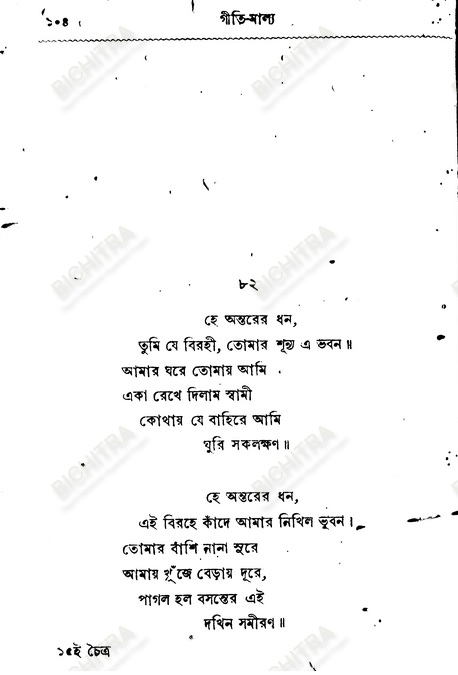 ১০৪
গীতি-মাল্য
৮২
হে অন্তরের ধন,
তুমি যে বিরহী, তোমার শূন্য এ ভবন॥
আমার ঘরে তোমায় আমি
একা রেখে দিলাম স্বামী
কোথায় যে বাহিরে আমি
ঘুরি সকলক্ষণ॥
হে অন্তরের ধন,
এই বিরহে কাঁদে আমার নিখিল ভুবন।
তোমার বাঁশি নানা সুরে
আমায় খুঁজে বেড়ায় দূরে,
পাগল হল বসন্তের এই
দখিন সমীরণ॥
১৫ই চৈত্র
BICHITRA
BICHITRA
BICHITRA
BICHITRA
BICHITRA
BICHITRA
BICHITRA
BICHITRA